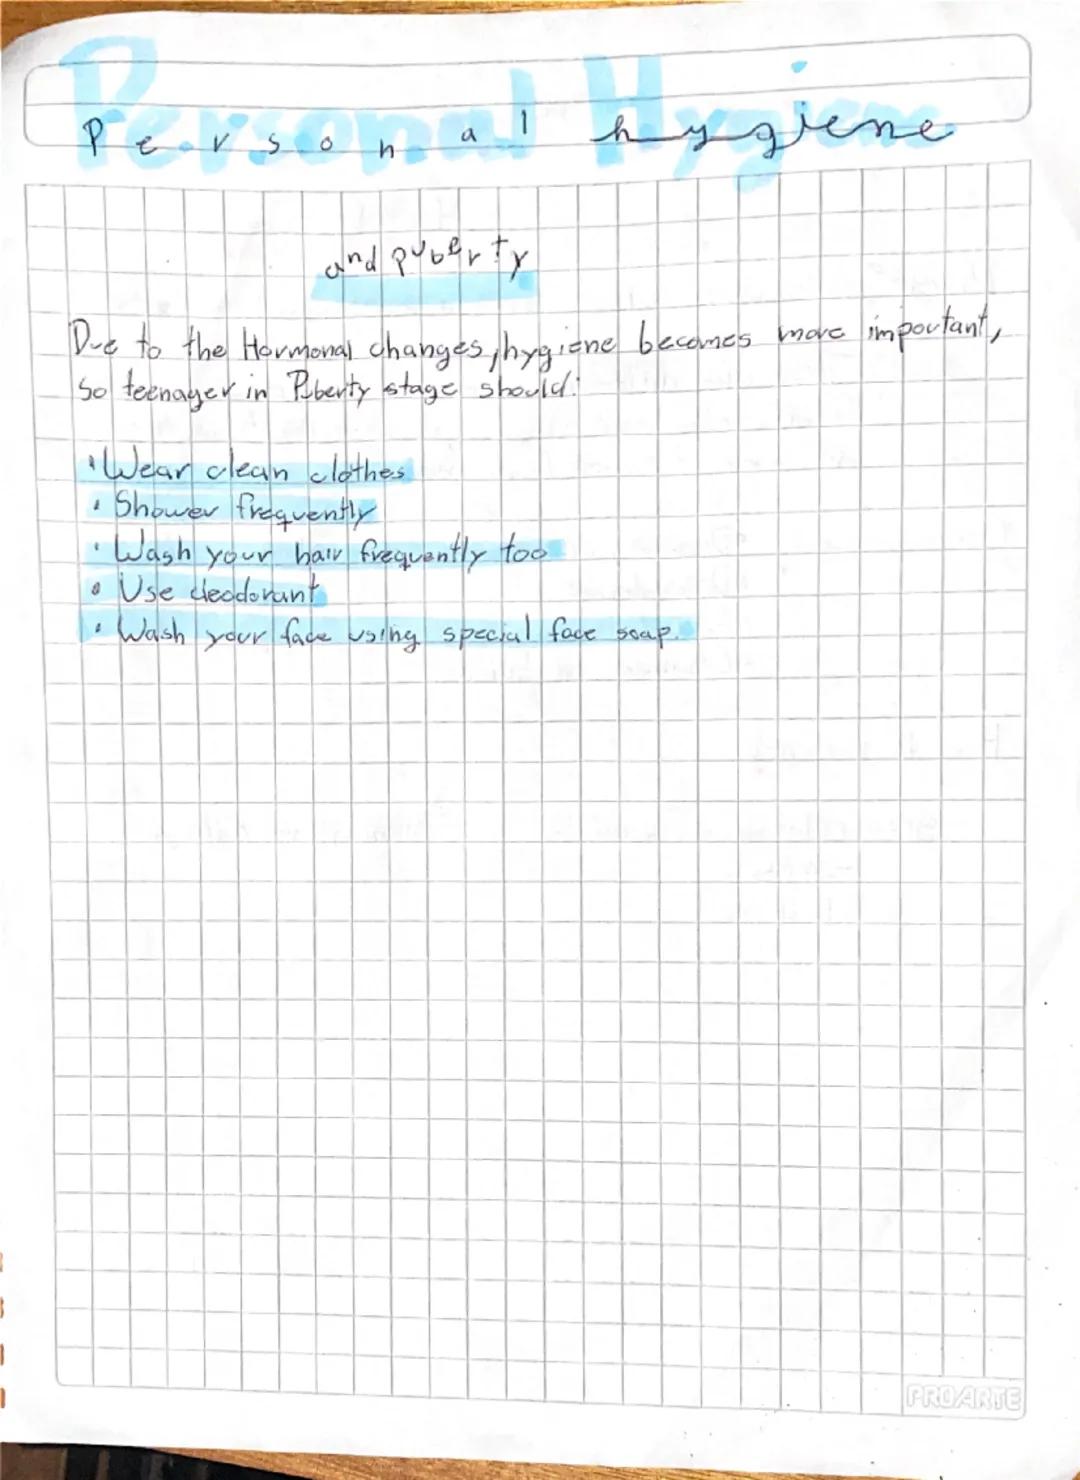 Personal Hygiene
Personal hygiene
and puberty
Due to the Hormonal changes, hygiene becomes more important,
So teenager in Puberty stage should:
• Wear clean clothes
• Shower frequently
• Wash your hair frequently too
• Use deodorant
• Wash your face using special face soap.
PROARTE